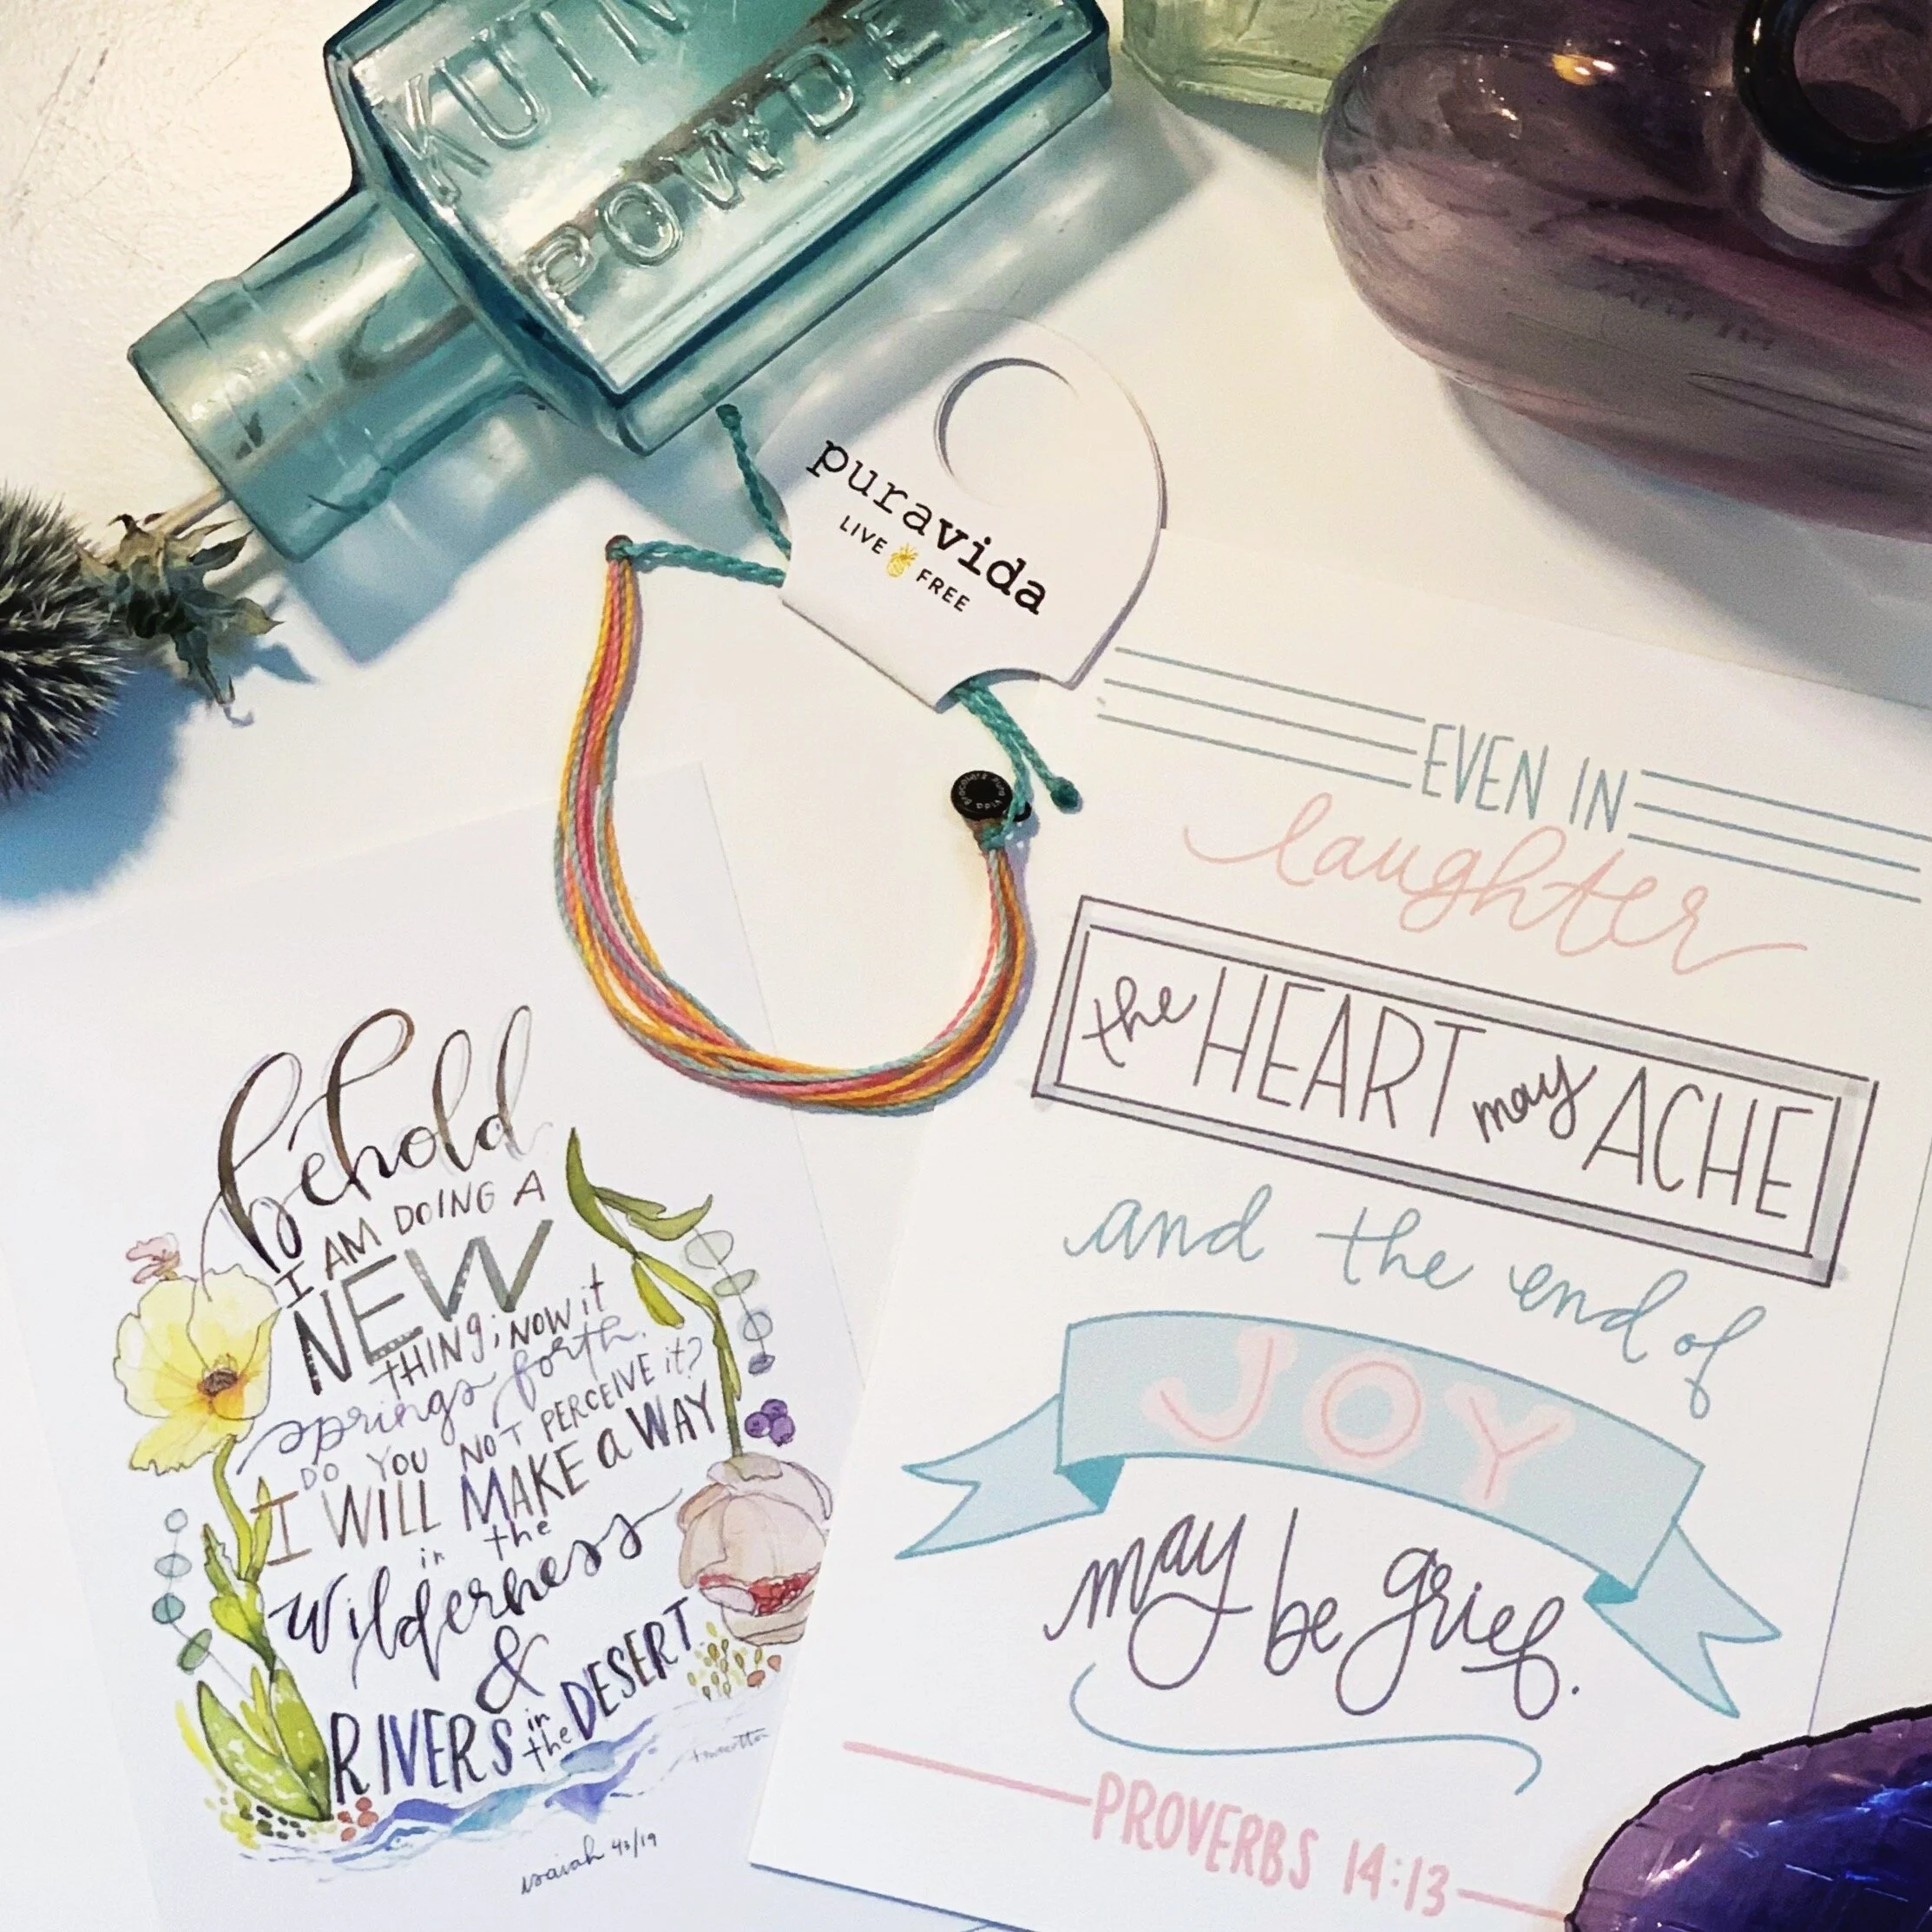 POWDE
puravida
LIVE FREE
EVEN IN
laughter
the HEART may ACHE
and the end of
JOY
may be grief.
PROVERBS 14:13
behold
I AM DOING A
NEW
THING; NOW it
springs forth.
DO YOU NOT PERCEIVE it?
I WILL MAKE a WAY
in the
Wilderness
&
RIVERS in the DESERT
isaiah 43/19